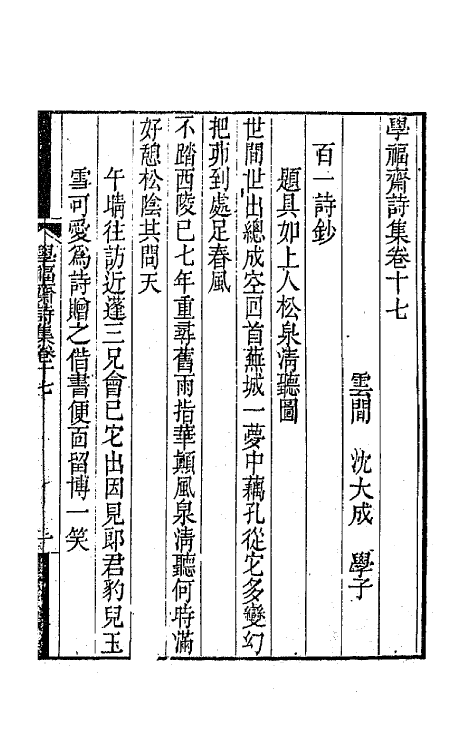 學福齋詩集卷十七
雲間 沈大成 學子
百一詩鈔
題具如上人松泉清聽圖
世間世出總成空回首蕪城一夢中藕孔從它多變幻
把茆到處足春風
不踏西陵已七年重尋舊雨指華顛風泉清聽何時滿
好憩松陰其問天
午晴往訪近蓬三兄會已它出因見郎君豹兒玉
雪可愛爲詩贈之借書便面留博一笑
學福齋詩集卷十七